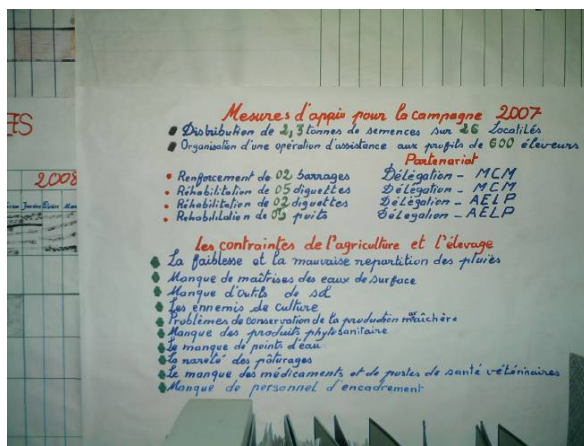 ES
2008
Mesures d'appui pour la campagne 2007
Distribution de 2,3 tonnes de semences sur 26 Localités
Organisation d'une opération d'assistance aux profits de 600 éleveurs
Partenariat
Renforcement de 02 barrages Délégation - MCM
Réhabilitation de 05 diguettes Délégation - MCM
Réhabilitation de 02 diguettes Délégation - AELP
Rehabilitation de puits Délégation - AELP
Les contraintes de l'agriculture et l'élevage
La faiblesse et la mauvaise repartition des pluies
Manque de maîtrises des eaux de surface
Manque d'outils de sol
Les ennemis de culture
Problèmes de conservation de la production maîchère
Manque des produits phytosanitaire
Le manque de points d'eau
La rareté des pâturages
Le manque des médicaments et de postes de santé vétérinaires
Manque de personnel d'encadrement